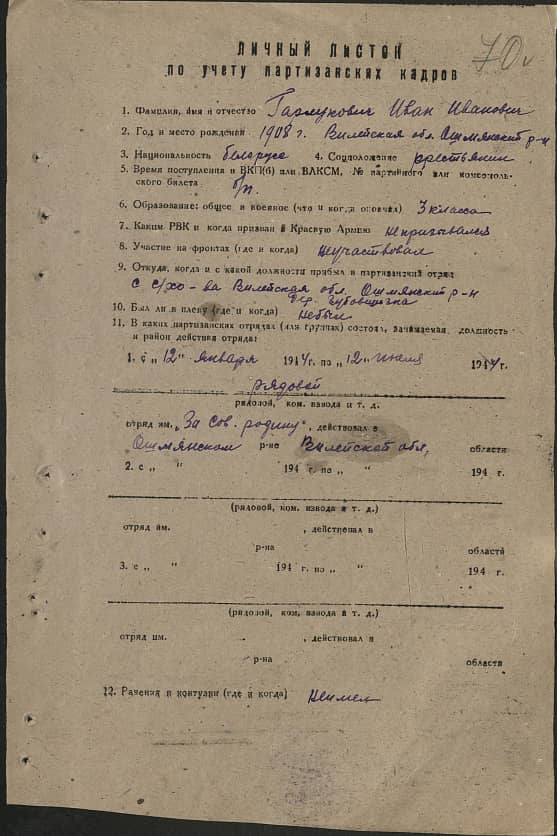 70
ЛИЧНЫЙ ЛИСТОК
по учету партизанских кадров
1. Фамилия, имя и отчество Гармукович Иван Иванович
2. Год и место рождения 1908 г. Вилейская обл. Ошмянский р-н
3. Национальность белорус 4. Соцположение крестьянин
5. Время поступления в ВКП(б) или ВЛКСМ, № партийного или комсомоль-
ского билета б/п.
6. Образование: общее и военное (что и когда окончил) 3 класса
7. Каким РВК и когда призван в Красную Армию непризывался
8. Участие на фронтах (где и когда) неучаствовал
9. Откуда, когда и с какой должности прибыл в партизанский отряд
с с/хо-ва Вилейская обл. Ошмянский р-н
дер.
10. Был ли в плену (где и когда) небыл
11. В каких партизанских отрядах (или группах) состоял, занимаемая должность
и район действия отряда:
1. с „12" января 1944 г. по „12" июля 1944 г.
рядовой
рядовой, ком. взвода и т. д.
отряд им. „За Сов. родину", действовал в
Ошмянском р-не Вилейской обл, области
2. с „ " 194 г. по „ " 194 г.
(рядовой, ком. взвода и т. д.)
отряд им. , действовал в
р-на области
3. с „ " 194 г. по „ " 194 г.
(рядовой, ком. взвода и т. д.)
отряд им. , действовал в
р-на области
12. Ранения и контузии (где и когда) неимел